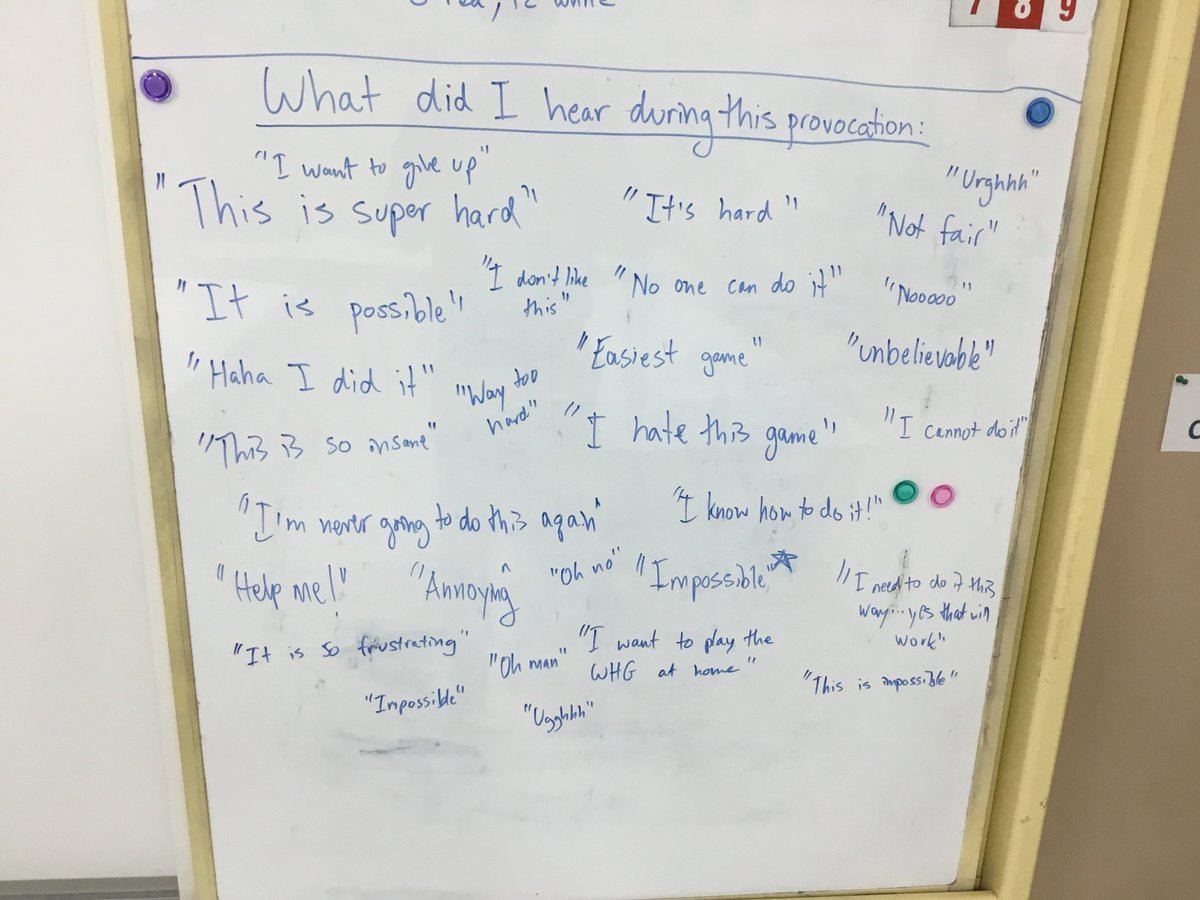 7 8 9
What did I hear during this provocation:
"I want to give up"
"Urghhh"
"This is super hard"
"It's hard"
"Not fair"
"I don't like
this"
"No one can do it"
"Nooooo"
"It is possible"
"Easiest game"
"unbelievable"
"Haha I did it"
"Way too
hard"
"I hate this game"
"I cannot do it"
"This is so insane"
"I'm never going to do this again"
"I know how to do it!"
"Help me!"
"Annoying"
"Oh no"
"Impossible"
"I need to do it this
way...yes that will
work"
"It is so frustrating"
"Oh man"
"I want to play the
WHG at home"
"This is impossible"
"Impossible"
"Ugghhh"